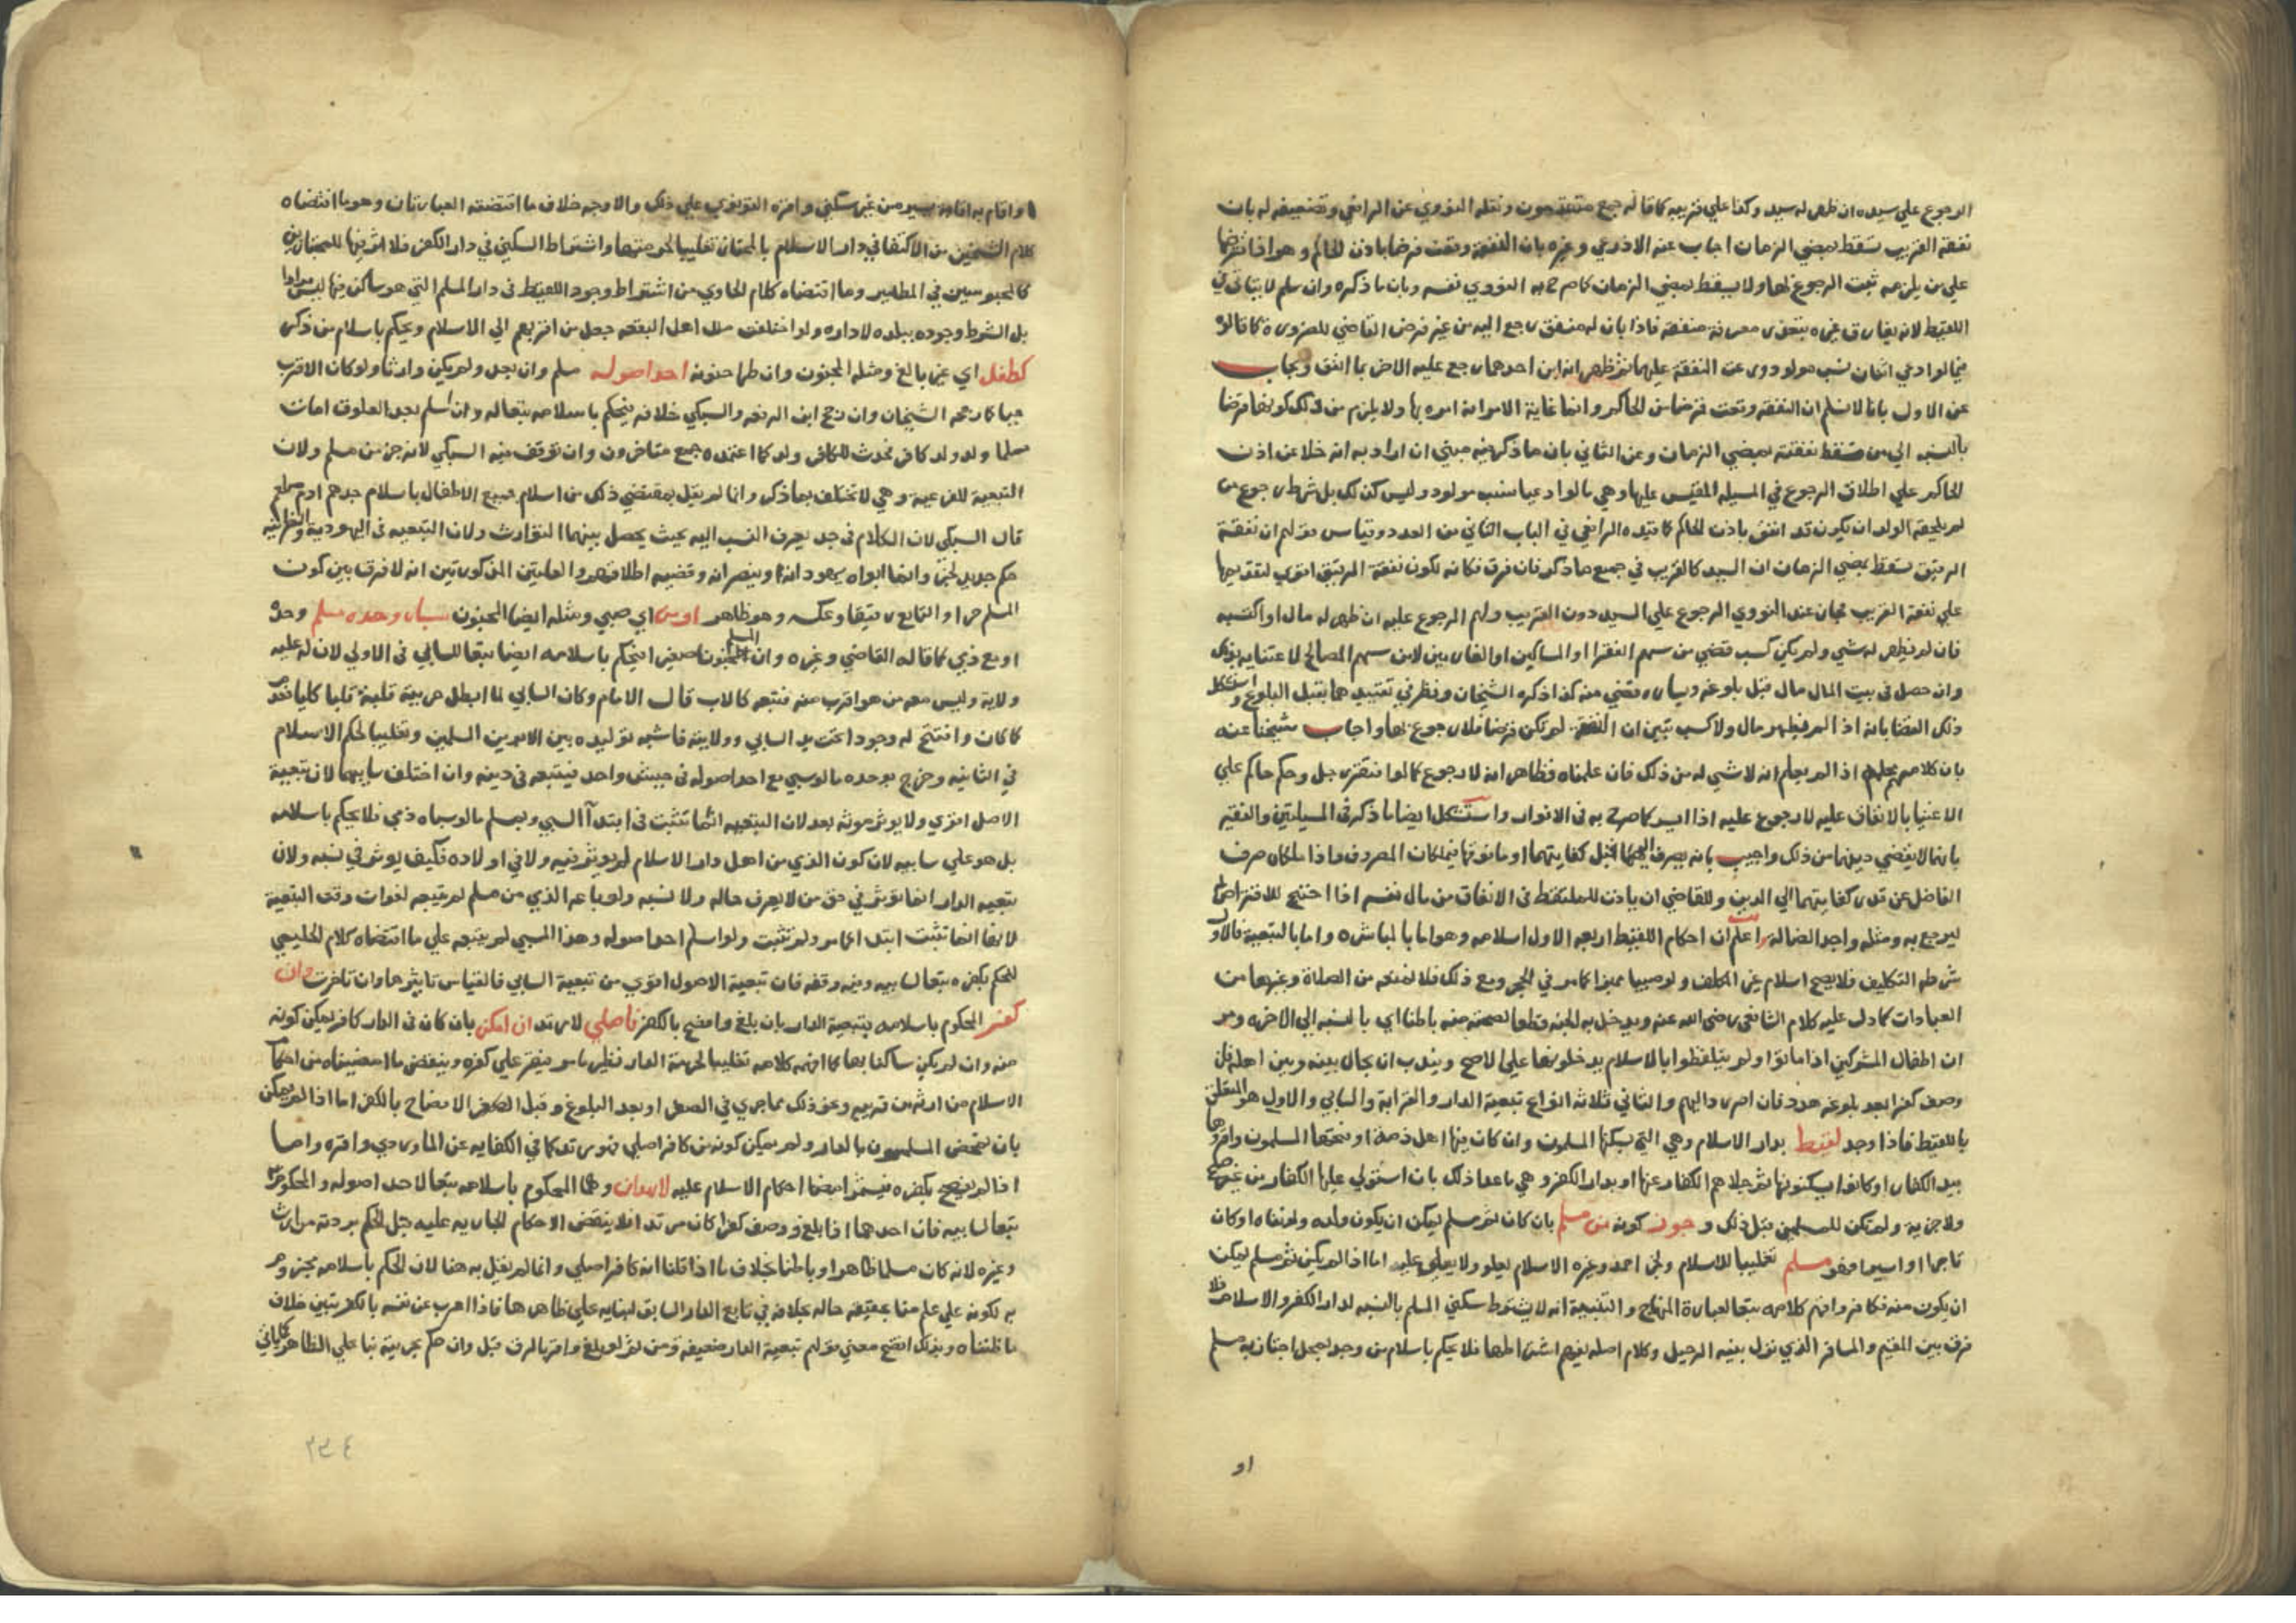 الرجوع علي سيده ان ظهر له سيد وكذا علي قريبه كما قاله جمع متقدمون ونقله النووي عن الرافعي وتضعيفه له بان
نفقة القريب تسقط بمضي الزمان اجاب عنه الاذرعي وغيره بان النفقة وقعت قرضا باذن الحاكم وهو اذا اقترضها
علي من يلزمه ثبت الرجوع لها ولا يسقط بمضي الزمان كما صرح به النووي نفسه وبان ما ذكره وان سلم لا يتاتي في
اللقيط لانه يفارق غيره بتعذر معرفة منفقه فاذا بان له منفق رجع اليه من غير فرض القاضي للضرورة كما قالوا
فيما لو ادعي اثنان نسب مولود وزعت النفقة عليهما ثم ظهر انه ابن احدهما رجع عليه الاخر بما انفق ويجاب
عن الاول بانا لا نسلم ان النفقة وقعت قرضا من الحاكم وانما غاية الامر انه امره بها ولا يلزم من ذلك كونها قرضا
بالنسبة الي من تسقط نفقته بمضي الزمان وعن الثاني بان ما ذكر فيه مبني ان اراد به انه خلا عن اذن
الحاكم علي اطلاق الرجوع في المسيله المقيس عليها وهي ما لو ادعيا نسب مولود وليس كذلك بل شرط رجوع من
لم يلحقه الولد ان يكون قد انفق باذن الحاكم كما قيده الرافعي في الباب الثاني من العدد وقياس قولهم ان نفقة
الرقيق تسقط بمضي الزمان ان السيد كالقريب في جميع ما ذكر فان فرق فكانه لكون نفقة الرقيق اقوي لتقديمها
علي نفقة القريب فجاز عند النووي الرجوع علي السيد دون القريب ولهم الرجوع عليه ان ظهر له مال او اكتسبه
فان لم يظهر له شي ولم يكن كسب قضي من سهم الفقرا او المساكين او الغارمين لا من سهم المصالح لاغتنايه بذلك
وان حصل في بيت المال مال قبل بلوغه ويساره قضي منه كذا ذكره الشيخان ونظر في تقييدهما بقبل البلوغ واستشكل
ذلك القضا بانه اذا لم يظهر مال ولا كسب تبين ان النفقة لم تكن قرضا فلا رجوع بها واجاب شيخنا عنه
بان كلامهم اذا لم يعلم انه لا شي له من ذلك فان علمناه فظاهر انه لا رجوع كما لوا فتقر رجل وحكم حاكم علي
الاغنيا بالانفاق عليه لا رجوع عليه اذا ايسر كما صرح به في الانوار واستشكل ايضا ما ذكر في المسيلتين والفقير
بانهما لا يقضي دينهما من ذلك واجيب بانه يصرف اليهما قبل كفايتهما او ما فوقها فيملكان المصروف واذا ملكاه صرف
الفاضل عن قدر كفايتهما الي الدين وللقاضي ان ياذن للملتقط في الانفاق من مال نفسه اذا احتيج للاقتراض له
ليرجع به ومثله واجد الضالة اعلم ان احكام اللقيط اربعه الاول اسلامه وهو اما بالمباشره واما بالتبعية فالاول
شرطه التكليف فلا يصح اسلام غير المكلف ولو صبيا مميزا كما مر في الحجر ومع ذلك فلا نمنعه من الصلاة وغيرها من
العبادات كما دل عليه كلام الشافعي رضي الله عنه ويدخل به الجنة قطعا لصحته منه باطنا اي بالنسبه الي الاخره ومر
ان اطفال المشركين اذا ماتوا ولو لم يتلفظوا بالاسلام يدخلونها علي الاصح ويندب ان يحال بينه وبين اهله فان
وصف كفرا بعد بلوغه هدد فان اصر رد اليهم والثاني ثلاثة انواع تبعية الدار والقرابة والسابي والاول هو المتعلق
باللقيط فاذا وجد لقيط بدار الاسلام وهي التي يسكنها المسلمون وان كان فيها اهل ذمة او فتحها المسلمون واقروها
بيد الكفار او كانوا يسكنونها ثم جلاهم الكفار عنها او بدار الكفر وهي ما عدا ذلك بان استولي عليها الكفار من غير صلح
ولا جزية ولم تكن للمسلمين قبل ذلك وجوز كونه من مسلم بان كان ثم مسلم يمكن ان يكون ولده ولو نفاه او كان
تاجرا او اسيرا فهو مسلم تغليبا للاسلام ولخبر احمد وغيره الاسلام يعلو ولا يعلي عليه اما اذا لم يكن ثم مسلم يمكن
ان يكون منه فكافر وافهم كلامه تبعا لعبارة المنهاج والتنبيه انه لا يشترط سكني المسلم بالنسبه لدار الكفر والاسلام فلا
فرق بين المقيم والمسافر الذي نزل بنية الرحيل وكلام اصله يفهم اشتراطها فلا يحكم باسلام من وجد بمحل اجتاز به مسلم
او
او اقام به اقامة يسيره من غير سكني واقره القونوي علي ذلك والاوجه خلاف ما اقتضته العبارتان وهو ما اقتضاه
كلام الشيخين من الاكتفا في دار الاسلام بالمجتاز تغليبا لحرمتها واشتراط السكني في دار الكفر فلا اثر فيها للمجتازين
كالمحبوسين في المطامير وما اقتضاه كلام الحاوي من اشتراط وجود اللقيط في دار المسلم التي هو ساكن فيها ليس مرادا
بل الشرط وجوده ببلده لا داره ولو اختلفت ملل اهل البقعه جعل من اقربهم الي الاسلام ويحكم باسلام من ذكر
كطفل اي غير بالغ ومثله المجنون وان طرا جنونه احد اصوله مسلم وان بعد ولم يكن وارثا ولو كان الاقرب
حيا كما رجحه الشيخان وان رجح ابن الرفعه والسبكي خلافه فيحكم باسلامه تبعا له وان اسلم بعد العلوق امات
مسلما ولد ولد كافر يحدث للكافر ولد كما اعتمده جمع متاخرون وان توقف فيه السبكي لانه جز من مسلم ولان
التبعية للفرعية وهي لا تختلف بما ذكر وانما لم يقل بمقتضي ذلك من اسلام جميع الاطفال باسلام جدهم ادم
قال السبكي لان الكلام في جد يعرف النسب اليه بحيث يحصل بينهما التوارث ولان التبعيه في اليهودية والنصرانيه
حكم جديد لخبر وانما ابواه يهودانه او ينصرانه وقضيه اطلاقهم والعلتين المذكورتين انه لا فرق بين كون
المسلم حرا والتابع رقيقا وعكسه وهو ظاهر او من اي صبي ومثله ايضا المجنون سباه وحده مسلم وحده
او مع ذمي كما قاله القاضي وغيره وان المسلم مجنونا صغيرا فيحكم باسلامه ايضا تبعا للسابي في الاولي لان له عليه
ولاية وليس معه من هو اقرب منه فتبعه كالاب قال الامام وكان السابي لما ابطل حريته قلبه قلبا كليا فعدم
كما كان وافتتح له وجودا تحت يد السابي وولايته فاشبه تولده بين الابوين المسلمين وتغليبا لحكم الاسلام
في الثانيه وخرج بوحده ما لو سبي مع احد اصوله في جيش واحد فيتبعه في دينه وان اختلف سابيهما لان تبعية
الاصل اقوي ولا يوثر موته بعد لان التبعيه انما تثبت في ابتدا السبي وبمسلم ما لو سباه ذمي فلا يحكم باسلامه
بل هو علي دين سابيه لان كون الذمي من اهل دار الاسلام لم يوثر فيه ولا في اولاده فكيف يوثر في نسبه ولان
تبعيه الدار انما توثر في حق من لا يعرف حاله ولا نسبه ولو باعه الذمي من مسلم لم يتبعه لفوات وقت التبعية
لانها انما تثبت ابتدا كما مر ولم تثبت ولو اسلم احد اصوله وهذا المسبي لم يتبعه علي ما اقتضاه كلام الحليمي
للحكم بكفره تبعا لسابيه وفيه وقفه فان تبعية الاصول اقوي من تبعية السابي فالقياس تاثيرها وان تاخرت وان
كفر المحكوم باسلامه بتبعية الدار بان بلغ وافصح بالكفر فاصلي لا مرتد ان امكن بان كان في الدار كافر يمكن كونه
منه وان لم يكن ساكنا بها كما افهمه كلامه تغليبا لحرمة الدار نظير ما مر فيقر علي كفره وينقض ما امضيناه من احكام
الاسلام من ارثه من قريبه ونحو ذلك مما جري في الصغر او بعد البلوغ وقبل الافصاح بالكفر اما اذا لم يمكن
بان تمحض المسلمون بالدار ولم يمكن كونه من كافر اصلي فهو مرتد كما في الكفايه عن الماوردي واقره واما
اذا لم يفصح بكفره فيستمر امضا احكام الاسلام عليه لا هذان وهما المحكوم باسلامه تبعا لاحد اصوله والمحكوم به
تبعا لسابيه فان احدهما اذا بلغ ووصف كفرا كان مرتدا فلا ينقض الاحكام الجاريه عليه قبل الحكم بردته من ارث
وغيره لانه كان مسلما ظاهرا وباطنا بخلاف ما اذا قلنا انه كافر اصلي وانما لم يقل به هنا لان الحكم باسلامه مجزوم
به لكونه علي علم منا بحقيقة حاله بخلافه في تابع الدار السابق لبنايه علي ظاهرها فاذا اعرب عن نفسه بالكفر تبين خلاف
ما ظنناه وبذلك اتضح معني قولهم تبعية الدار ضعيفة ومن ثم لو بلغ واقر بالرق قبل وان حكم بحريته بنا علي الظاهر
٢٣٤